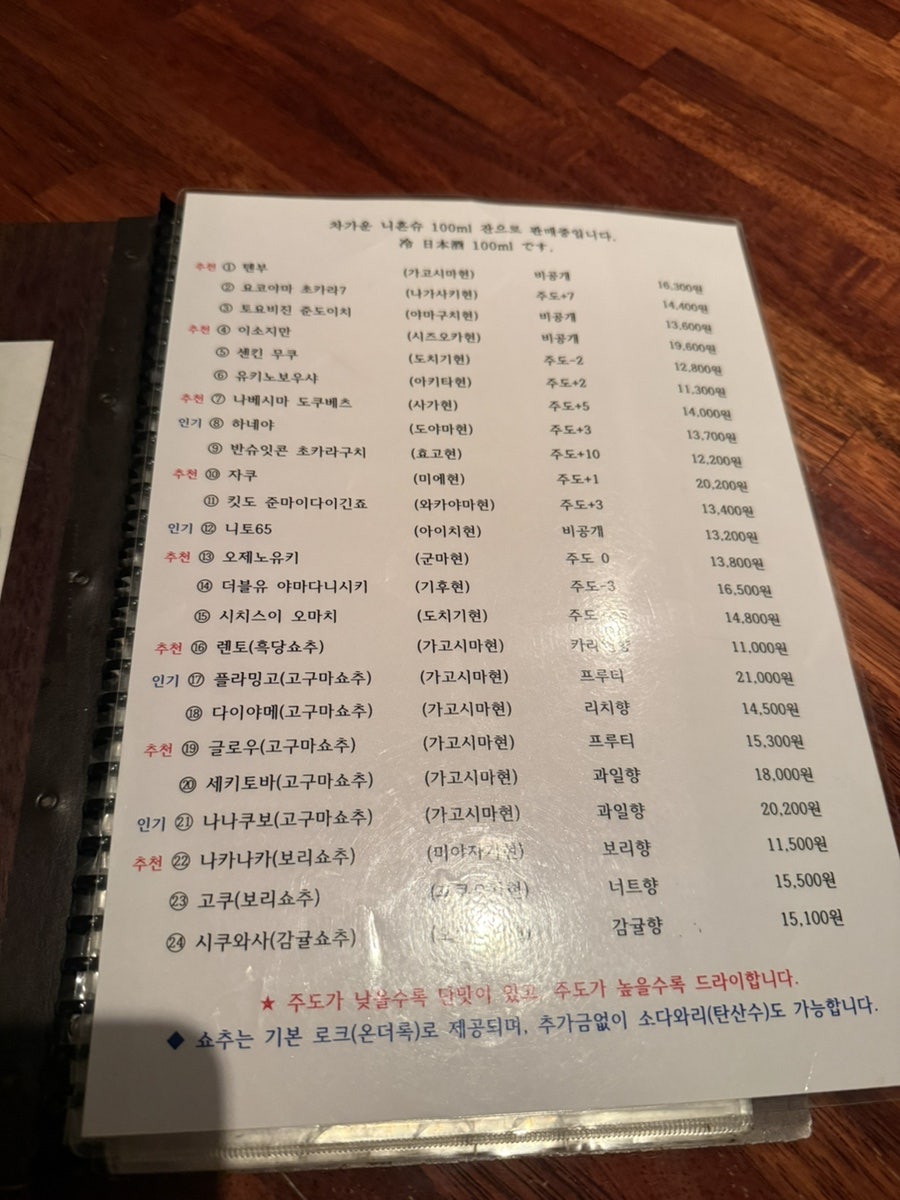 차가운 니혼슈 100ml 잔으로 판매중입니다.
冷 日本酒 100ml です.
추천 ① 텐부 (가고시마현) 비공개 16,300원
② 요코야마 초카라7 (나가사키현) 주도+7 14,400원
③ 토요비진 준도이치 (야마구치현) 비공개 13,600원
추천 ④ 이소지만 (시즈오카현) 비공개 19,600원
⑤ 센킨 무쿠 (도치기현) 주도-2 12,800원
⑥ 유키노보우샤 (아키타현) 주도+2 11,300원
추천 ⑦ 나베시마 도쿠베츠 (사가현) 주도+5 14,000원
인기 ⑧ 하네야 (도야마현) 주도+3 13,700원
⑨ 반슈잇콘 초카라구치 (효고현) 주도+10 12,200원
추천 ⑩ 자쿠 (미에현) 주도+1 20,200원
⑪ 킷도 준마이다이긴죠 (와카야마현) 주도+3 13,400원
인기 ⑫ 니토65 (아이치현) 비공개 13,200원
추천 ⑬ 오제노유키 (군마현) 주도 0 13,800원
⑭ 더블유 야마다니시키 (기후현) 주도-3 16,500원
⑮ 시치스이 오마치 (도치기현) 주도 14,800원
추천 ⑯ 렌토(흑당쇼추) (가고시마현) 11,000원
인기 ⑰ 플라밍고(고구마쇼추) (가고시마현) 프루티 21,000원
⑱ 다이야메(고구마쇼추) (가고시마현) 리치향 14,500원
추천 ⑲ 글로우(고구마쇼추) (가고시마현) 프루티 15,300원
⑳ 세키토바(고구마쇼추) (가고시마현) 과일향 18,000원
인기 ㉑ 나나쿠보(고구마쇼추) (가고시마현) 과일향 20,200원
추천 ㉒ 나카나카(보리쇼추) (미야자키현) 보리향 11,500원
㉓ 고쿠(보리쇼추) 너트향 15,500원
㉔ 시쿠와사(감귤쇼추) 감귤향 15,100원
★ 주도가 낮을수록 단맛이 있고, 주도가 높을수록 드라이합니다.
◆ 쇼추는 기본 로크(온더록)로 제공되며, 추가금없이 소다와리(탄산수)도 가능합니다.